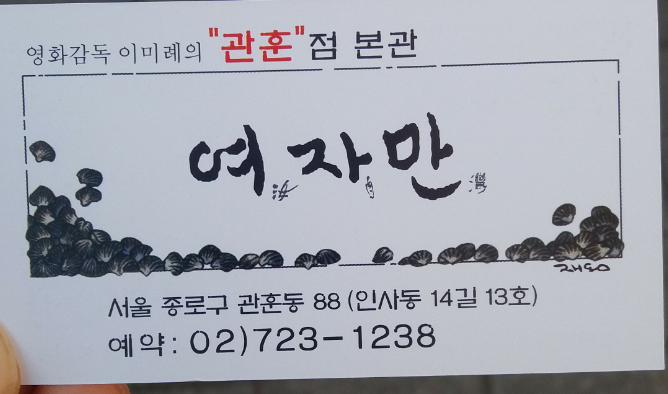 영화감독 이미례의 "관훈"점 본관
여자만
汝 自 灣
재동
서울 종로구 관훈동 88 (인사동 14길 13호)
예약: 02)723-1238